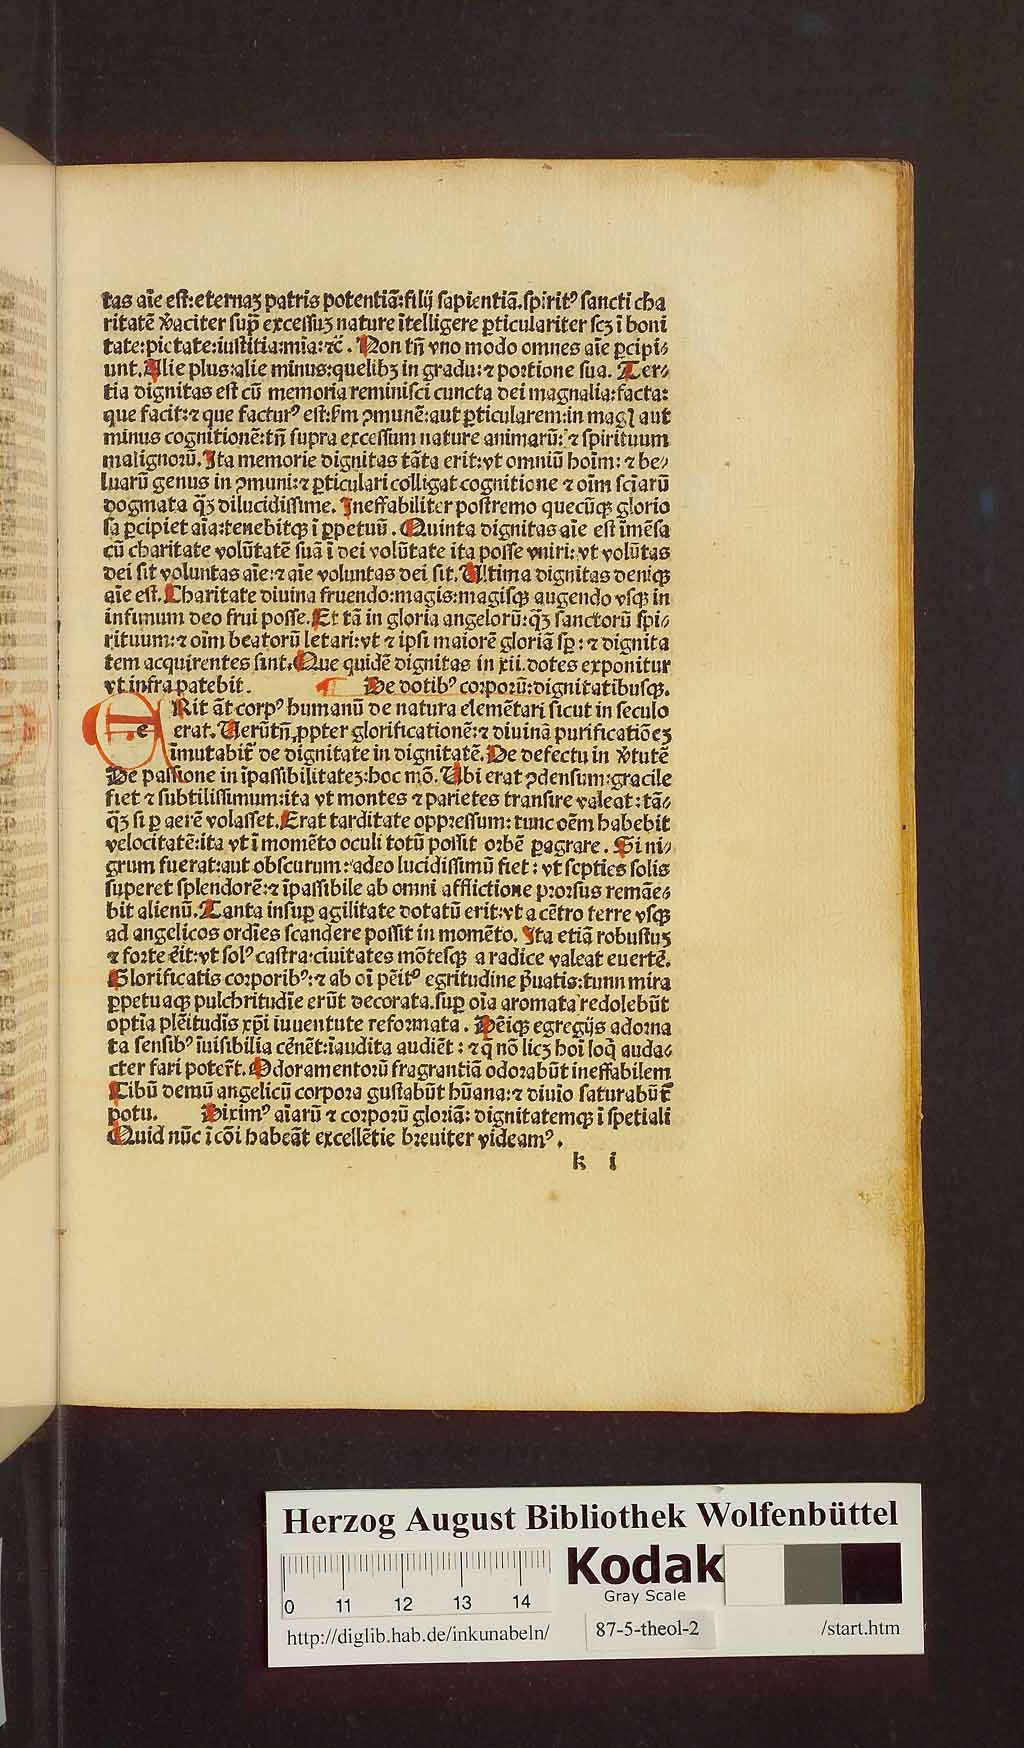 tas aīe est:eternaʒ patris potentiā:filij sapientiā.spiritꝰ sancti cha
ritatē v̾aciter sup̄ excessuʒ nature ītelligere ꝑticulariter scʒ ī boni
tate:pietate:iustitia:mīa:ꝛc̄. Non tn̄ vno modo omnes aīe ꝑcipi⸗
unt. Alie plus:alie minus:quelibʒ in gradu:⁊ portione sua. Ter⸗
tia dignitas est cū memoria reminisci cuncta dei magnalia:facta:
que facit:⁊ que facturꝰ est:ẜm ꝯmunē:aut ꝑticularem:in magꝭ aut
minus cognitionē:tn̄ supra excessum nature animarū:⁊ spirituum
malignorū. Ita memorie dignitas tāta erit:vt omniū hoīm:⁊ be⸗
luarū genus in ꝯmuni:⁊ ꝑticulari colligat cognitione ⁊ oīm sciarū
dogmata qʒ̄ dilucidissime. Ineffabiliter postremo quecūqꝫ glorio
sa ꝑcipiet aīa:tenebitqꝫ ī ꝑpetuū. Quinta dignitas aīe est īmēsa
cū charitate volūtatē suā ī dei volūtate ita posse vniri:vt volūtas
dei sit voluntas aīe:⁊ aīe voluntas dei sit. Ultima dignitas deniqꝫ
aīe est. Charitate diuina fruendo:magis:magisqꝫ augendo vsqꝫ in
infimum deo frui posse. Et tā in gloria angelorū:qʒ̄ sanctorū spi⸗
rituum:⁊ oīm beatorū letari:vt ⁊ ipsi maiorē gloriā sꝑ:⁊ dignita
tem acquirentes sint. Que quidē dignitas in xii. dotes exponitur
vt infra patebit. ¶ De dotibꝰ corporū:dignitatibusqꝫ.
e Rit āt corpꝰ humanū de natura elemētari sicut in seculo
erat. Uerūtn̄ ꝓpter glorificationē:⁊ diuinā purificationeʒ
īmutabit᷑ de dignitate in dignitatē. De defectu in v̾tutē
De passione in īpassibilitateʒ:hoc mō. Ubi erat ꝯdensum:gracile
fiet ⁊ subtilissimum:ita vt montes ⁊ parietes transire valeat:tā⸗
qʒ̄ si ꝑ aerē volasset. Erat tarditate oppressum:tunc oēm habebit
velocitatē:ita vt ī momēto oculi totū possit orbē ꝑagrare. Si ni⸗
grum fuerat:aut obscurum:adeo lucidissimū fiet:vt septies solis
superet splendorē:⁊ īpassibile ab omni afflictione prorsus remāe⸗
bit alienū. Tanta insuꝑ agilitate dotatū erit:vt a cētro terre vsqꝫ
ad angelicos ordīes scandere possit in momēto. Ita etiā robustuʒ
⁊ forte e̾it:vt solꝰ castra:ciuitates mōtesqꝫ a radice valeat euerte̾.
Glorificatis corporibꝰ:⁊ ab oī pēitꝰ egritudine p̾uatis:tunn mira
ꝑpetuaqꝫ pulchritudīe erūt decorata.suꝑ oīa aromata redolebūt
optīa plēitudīs xp̄i iuuentute reformata. Dēiqꝫ egregijs adorna
ta sensibꝰ īuisibilia ce̾nēt:īaudita audiēt:⁊ q̄ nō licʒ hoī loq̄ auda⸗
cter fari potert̄. Odoramentorū fragrantiā odorabūt ineffabilem
Cibū demū angelicū corpora gustabūt hūana:⁊ diuīo saturabūt᷑
potu. Diximꝰ aīarū ⁊ corporū gloriā:dignitatemqꝫ ī spetiali
Quid nūc ī cōi habeāt excellētie breuiter videamꝰ.
k i
Herzog August Bibliothek Wolfenbüttel
Kodak
Gray Scale
0 11 12 13 14
http://diglib.hab.de/inkunabeln/ 87-5-theol-2 /start.htm